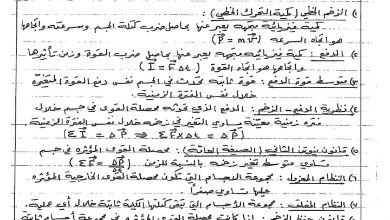 ١) الزخم الخطي (كمية التحرك الخطي):
كمية فيزيائية متجهه يعبر عنها بحاصل ضرب كتلة الجسم وسرعته واتجاهها
هو اتجاه السرعة (P = m v)
٢) الدفع: كمية فيزيائية متجهه يعبر عنها بحاصل ضرب القوة وزمن تأثيرها
واتجاهها هو اتجاه القوة (I = F Δt)
٣) متوسط قوة الدفع: قوة ثابتة تحدث في الجسم نفس دفع القوة المتغيره
خلال نفس الفترة الزمنية.
٤) نظرية الدفع - الزخم: الدفع الذي تحدثه محصلة القوى في جسم خلال
فتره زمنية معينة يساوي التغير في زخمه خلال نفس الفترة الزمنية
(ΣI = ΔP ⇒ ΣF×Δt = ΔP)
٥) قانون نيوتن الثاني (الصيغة العامة): محصلة القوى المؤثره في جسم
تساوي متوسط تغير زخمه بالنسبة للزمن. (ΣF = ΔP/Δt)
٦) النظام المعزول: مجموعة الاجسام التي تكون محصلة القوى الخارجية المؤثره
عليها تساوي صفراً
٧) النظام المغلق: مجموعة الأجسام التي تبقى كتلتها الكلية ثابتة خلال أي عملية.
قانون حفظ الزخم: إذا كانت محصلة القوى المؤثره في مجموعة أجسام ثابتة